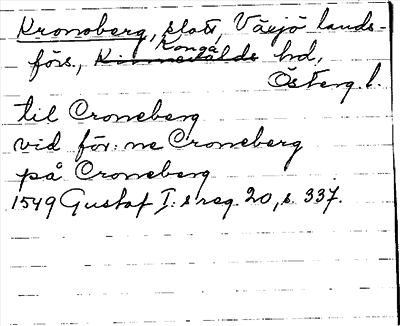 Kronoberg, slott, Växjö lands-
förs., Kinnevalds Konga hd,
Österg. l.
til Croneberg
vid för:ne Croneberg
på Croneberg
1549 Gustaf I:s reg. 20, s. 337.